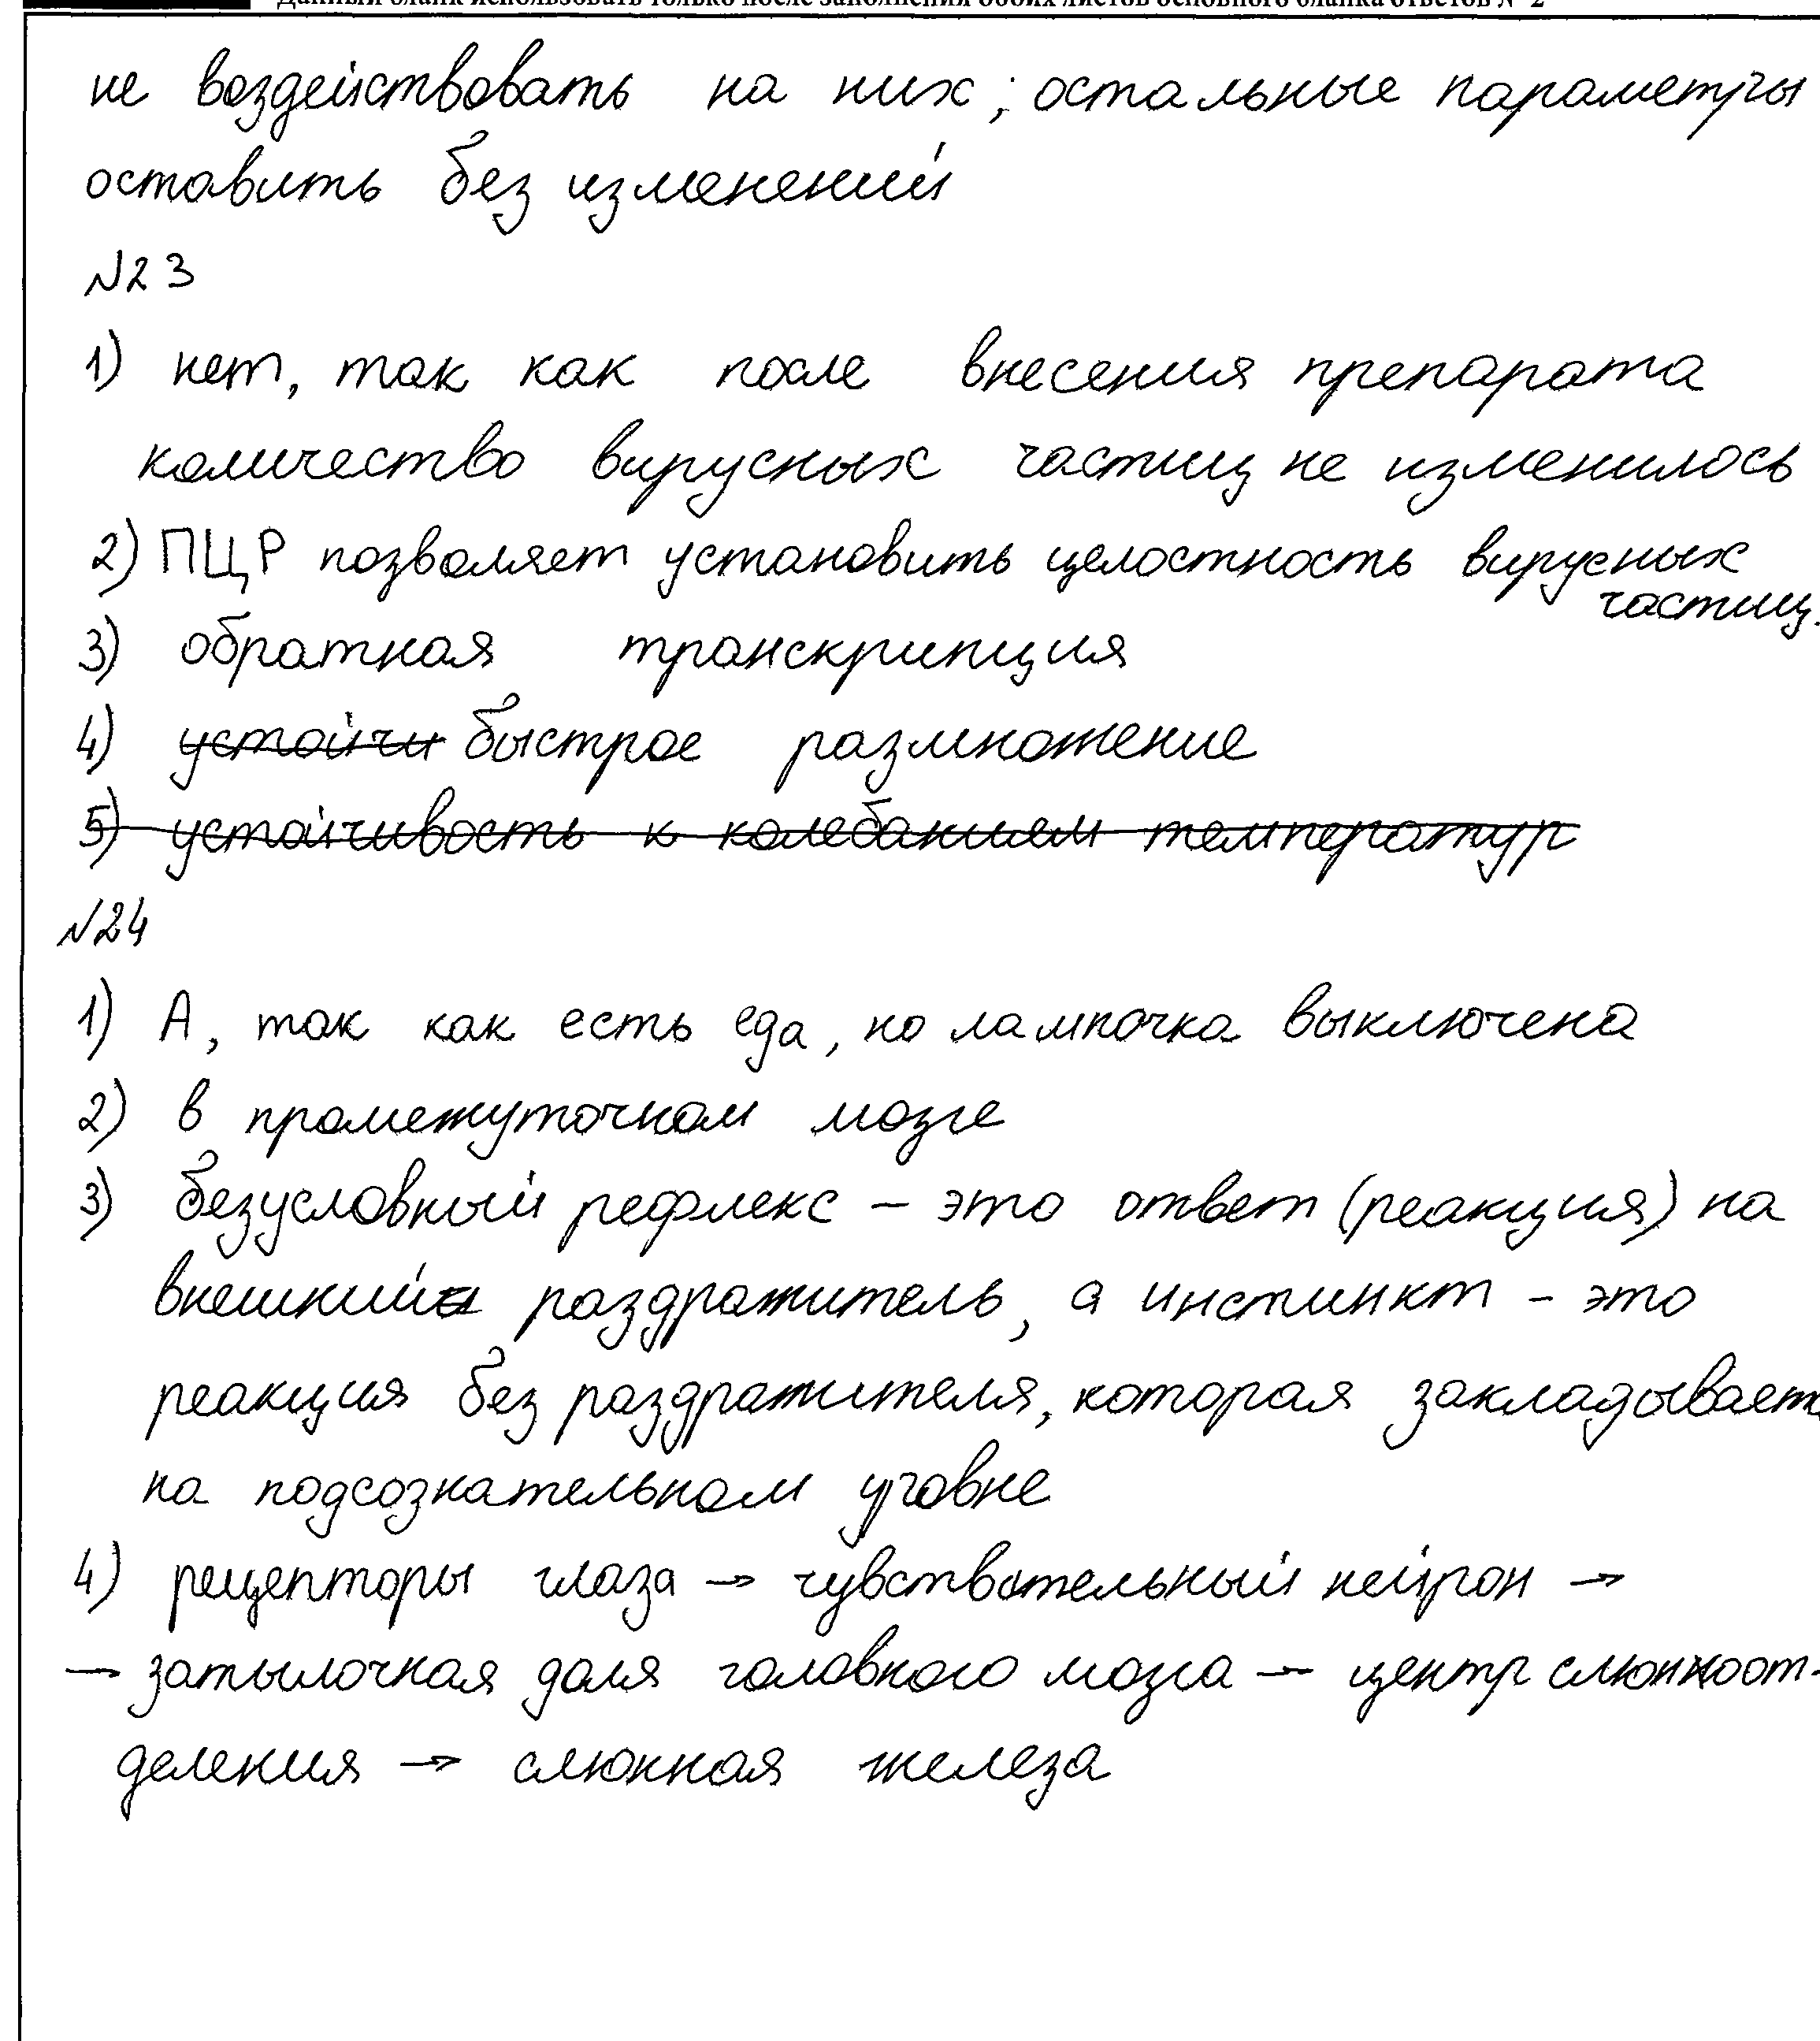 Данный бланк использовать только после заполнения обоих листов основного бланка ответов № 2
не воздействовать на них; остальные параметры
оставить без изменений
№23
1) нет, так как после внесения препарата
количество вирусных частиц не изменилось
2) ПЦР позволяет установить целостность вирусных
частиц.
3) обратная транскрипция
4) устойчи быстрое размножение
5) устойчивость к колебаниям температур
№24
1) А, так как есть еда, но лампочка выключена
2) в промежуточном мозге
3) безусловный рефлекс – это ответ (реакция) на
внешний раздражитель, а инстинкт – это
реакция без раздражителя, которая закладывает
на подсознательном уровне
4) рецепторы глаза → чувствительный нейрон →
→ затылочная доля головного мозга → центр слюноот-
деления → слюнная железа